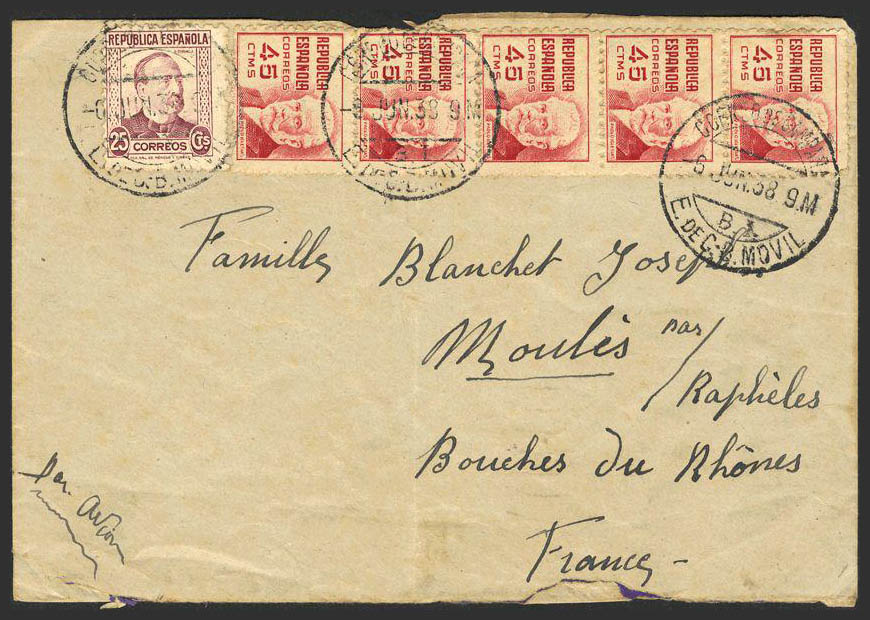 REPUBLICA ESPAÑOLA
25 Cs
CORREOS
REPUBLICA ESPAÑOLA
CORREOS
45 CTMS
REPUBLICA ESPAÑOLA
CORREOS
45 CTMS
REPUBLICA ESPAÑOLA
CORREOS
45 CTMS
REPUBLICA ESPAÑOLA
CORREOS
45 CTMS
REPUBLICA ESPAÑOLA
CORREOS
45 CTMS
-6 JUN.38
E. DE C.-B. MOVIL
-6 JUN.38 9.M
E. DE C.-B. MOVIL
-6 JUN.38 9.M
B.
E. DE C.-B. MOVIL
Famille Blanchet Josef
Moulès par/
Raphèles
Bouches du Rhônes
France -
Par Avion